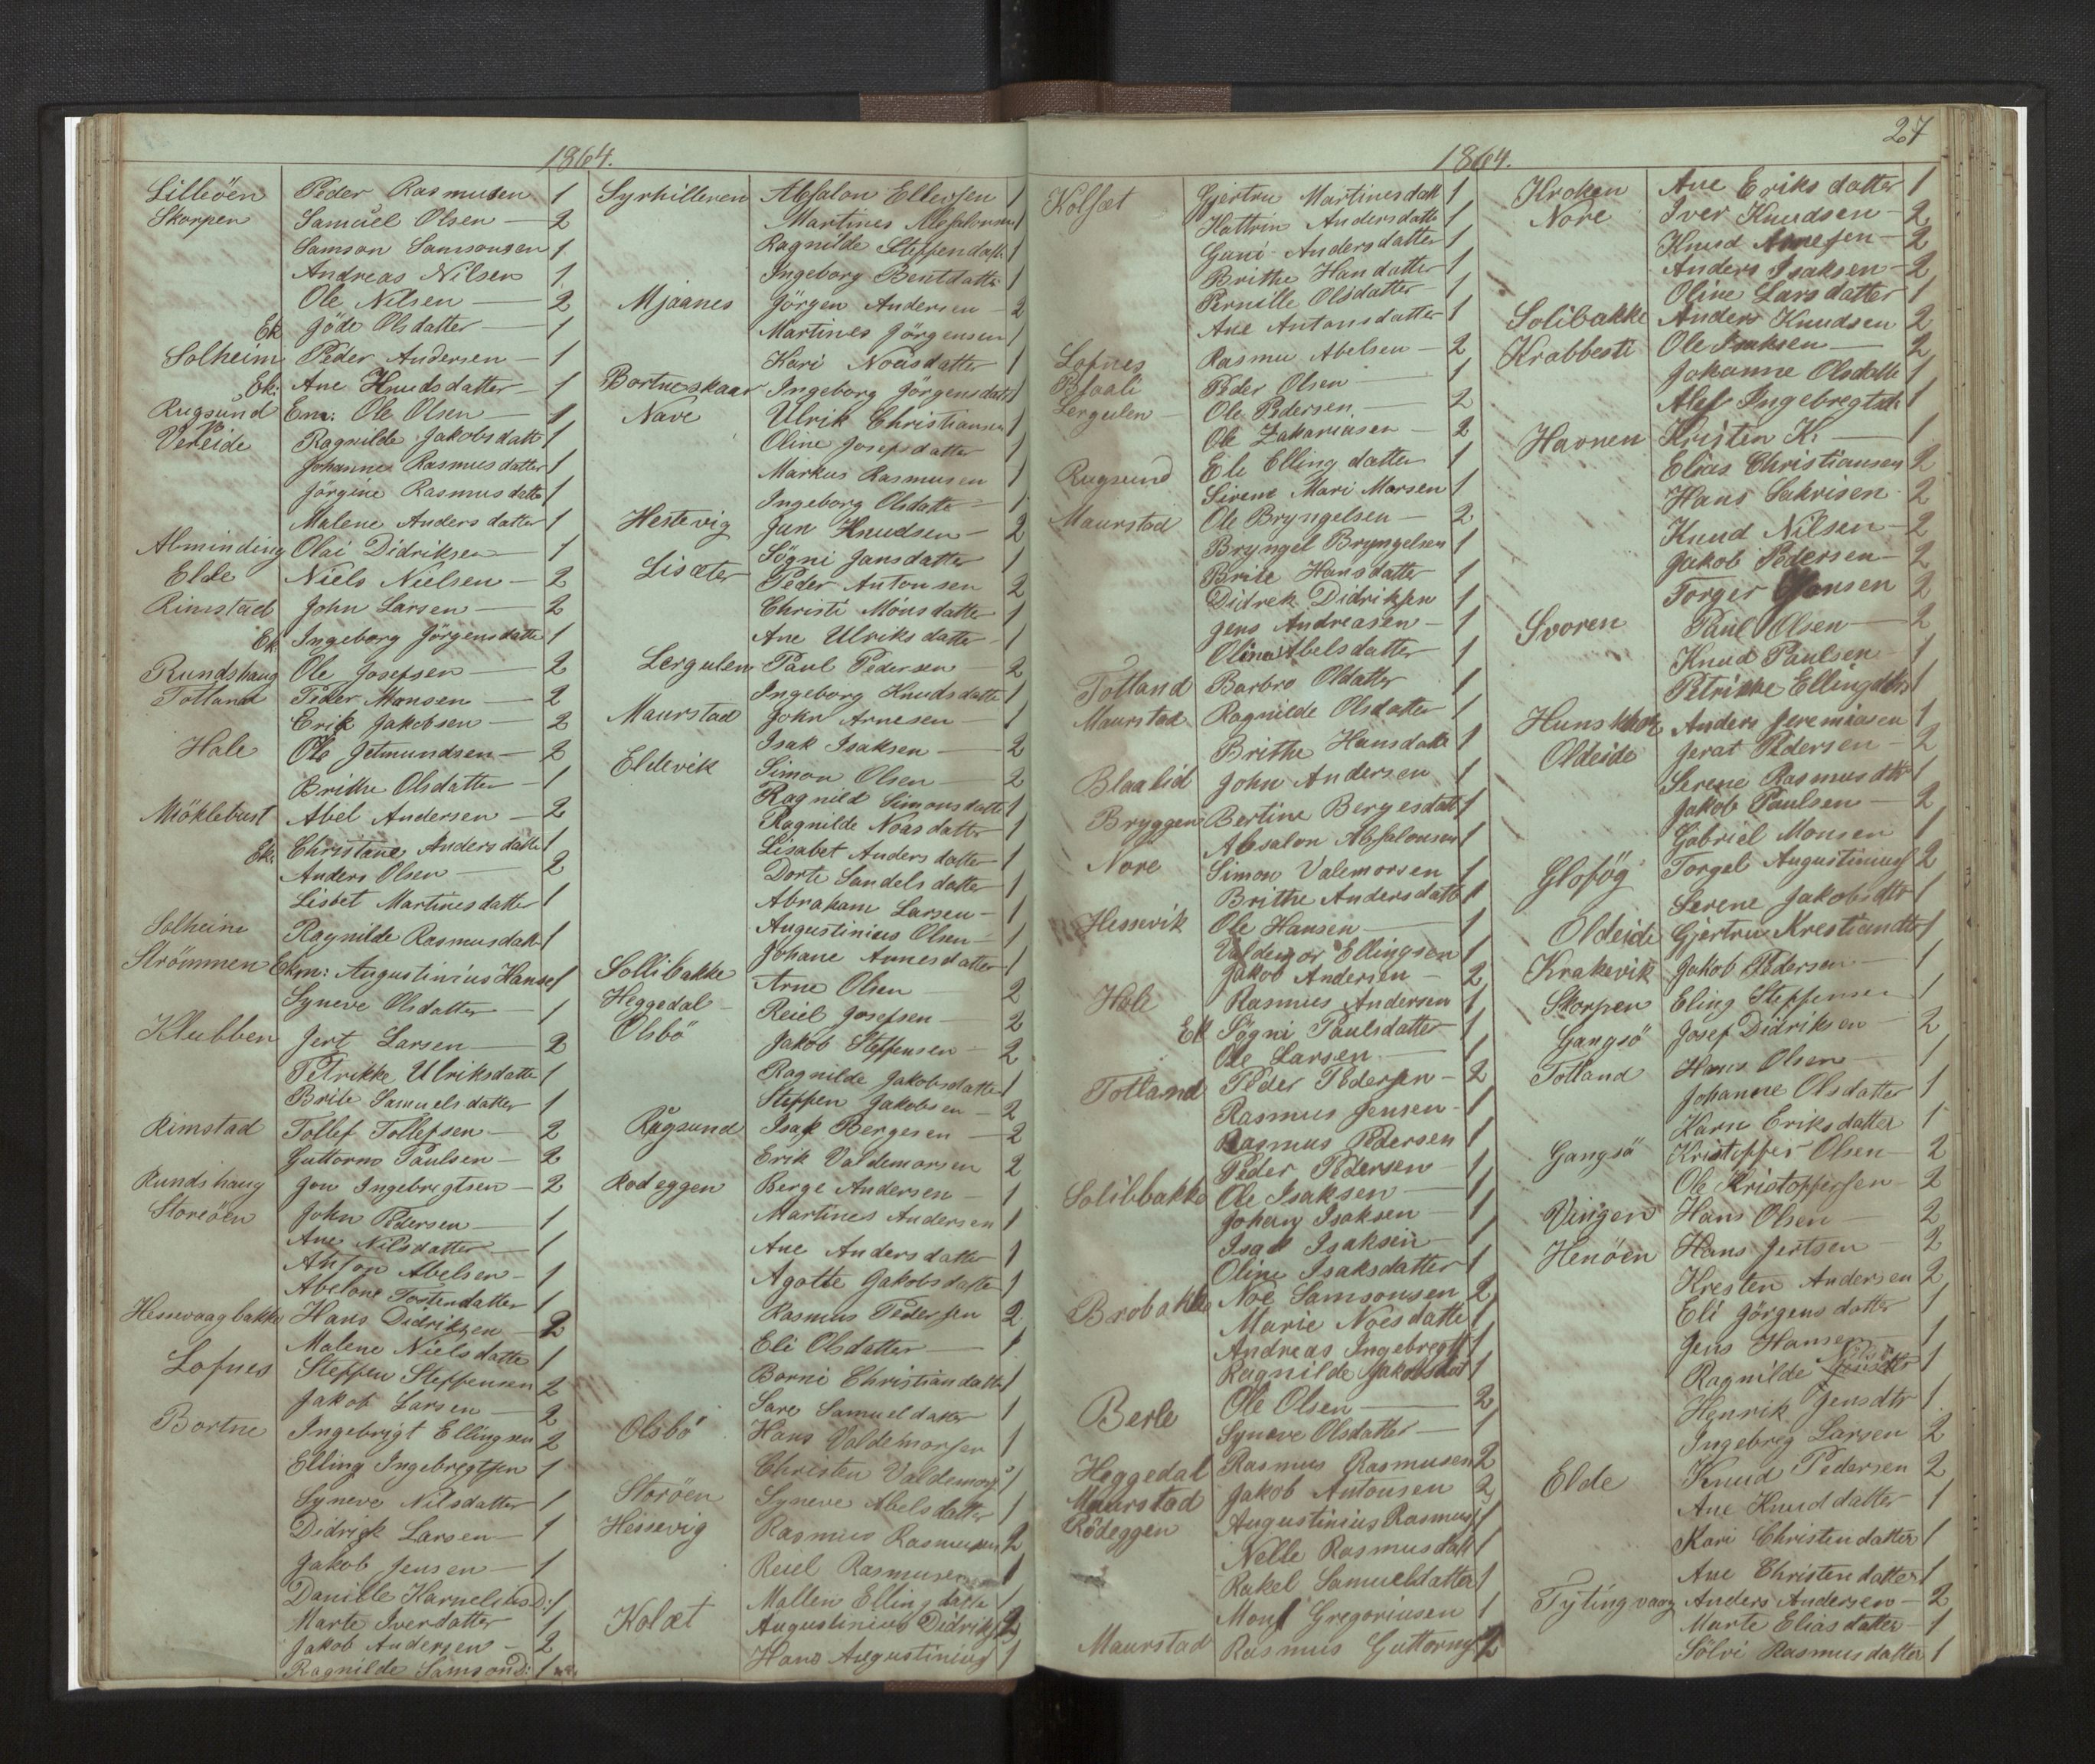 1864.
Lilleöen Peder Rasmusen 1
Skorpen Samuel Olsen — 2
Samson Samsonsen 1
Andreas Nilsen 1
Ole Nilsen — 2
Ek Jöde Olsdatter — 1
Solheim Peder Andersen — 1
Ek: Ane Knudsdatter — 1
Rugsund Em: Ole Olsen — 1
Vereide Ragnilde Jakobsdatt 1
Johanne Rasmusdatter 1
Jörgine Rasmusdatter 1
Malene Andersdatter 1
Alminding Olai Didriksen — 1
Elde Niels Nielsen — 2
Rimstad John Larsen — 2
Ek Ingeborg Jörgensdatte 1
Rundshaug Ole Josefsen — 2
Totland Peder Monsen — 2
Erik Jakobsen — 2
Hole Ole Jetmundsen — 2
Brithe Olsdatter — 1
Möklebust Abel Andersen — 2
Ek: Christane Andersdatte 1
Anders Olsen — 2
Lisbet Martinesdatter 1
Solheim Ragnilde Rasmusdatt 1
Strömmen Ekm: Augustinius Hanse 1
Syneve Olsdatter — 1
Klubben Jert Larsen — 2
Petrikke Ulriksdatte 1
Brite Samuelsdatter 1
Rimstad Tollef Tollefsen — 2
Guttorm Paulsen — 2
Rundshaug Jon Ingebrigtsen — 2
Storeöen John Pedersen — 1
Ane Nilsdatter — 1
Anton Abelsen — 1
Abelone Tostendatter 1
Hessevaagbakke Hans Didriksen — 2
Malene Nielsdatte 1
Lofnes Steffen Steffensen 2
Jakob Larsen — 2
Bortne Ingebrigt Ellingsen 2
Elling Ingebregtsen 1
Syneve Nilsdatter 1
Didrik Larsen — 1
Jakob Jensen — 1
Danille Karneliusd: 1
Marte Iverdatter 1
Jakob Andersen — 2
Ragnilde Samsond: 1
Syrhilleren Absalon Ellefsen 1
Martines Absalonsen 1
Ragnilde Steffendatt 1
Ingeborg Bentdatte 1
Mjaanes Jörgen Andersen — 2
Martines Jörgensen 1
Kari Noasdatter 1
Bortneskaar Ingeborg Jörgensdatt 1
Nave Ulrik Christiansen 1
Oline Josefsdatter 1
Markus Rasmusen 1
Ingeborg Olsdatte 1
Hestevig Jan Knudsen — 2
Sögni Jansdatter 1
Lisæter Peder Antonsen 2
Christi Mönsdatter 1
Ane Ulriksdatter — 1
Lergulen Paul Pedersen — 2
Ingeborg Knudsdatte 1
Maurstad John Arnesen — 1
Isak Isaksen — 2
Eldevik Simon Olsen — 2
Ragnild Simonsdatte 1
Ragnilde Noasdatter 1
Lisabet Andersdatter 1
Dorte Sandelsdatter 1
Abraham Larsen — 1
Augustinius Olsen — 1
Johane Annesdatter 1
Sollibakke Arne Olsen 2
Heggedal Reiel Josefsen — 2
Olsbö Jakob Steffensen — 2
Ragnilde Jakobsdatter 1
Steffen Jakobsen — 2
Rugsund Isak Bergesen — 2
Erik Valdemorsen 2
Rodeggen Berge Andersen — 1
Martines Andersen 1
Ane Andersdatter 1
Agatte Jakobsdatte 1
Rasmus Pedersen 2
Eli Olsdatter — 1
Borni Christiandatte 1
Sare Samueldatter 1
Olsbö Hans Valdemorsen 1
Christen Valdemors: 1
Storöen Syneve Abelsdatter 1
Hessevig Rasmus Rasmusen 2
Reiel Rasmusen 1
Mallen Ellingdatte 1
Kolæt Augustinius Didriks 2
Hans Augustinius 1
27
1864.
Kolsæt Gjertru Martinesdatt 1
Kattrin Andersdatte 1
Guni Andersdatter 1
Brithe Handatter 1
Pernille Olsdatter — 1
Ane Antonsdatter 1
Lofnes Rasmus Abelsen — 2
Blaali Peder Olsen — 1
Lergulen Ole Pedersen — 2
Ole Zakariasen — 2
Rugsund Eli Ellingdatter 1
Sirene Mari Morsen 1
Maurstad Ole Bryngelsen — 2
Bryngel Bryngelsen 1
Brite Hansdatter 1
Didrek Didriksen 1
Jens Andreasen — 1
Olina Abelsdatter 1
Totland Barbro Oldatter 1
Maurstad Ragnilde Olsdatter 1
Brithe Hansdatte 1
Blaalid John Andersen 1
Bryggen Bertine Bergesdatt 1
Absalon Absalonsen 1
Nore Simon Valemorsen 1
Brithe Andersdatt 1
Hessevik Ole Hansen — 1
Valdemor Ellingsen 1
Jakob Andersen — 2
Hole Rasmus Andersen 1
Ek Sögni Paulsdatter 1
Ole Larsen — 1
Totland Peder Pedersen — 2
Rasmus Jensen — 1
Rasmus Pedersen 1
Peder Pedersen 1
Solibbakke Ole Isaksen — 1
Johan Isaksen — 1
Isak Isaksen — 1
Oline Isaksdatter 1
Brobakke Noe Samsonsen 2
Marie Noesdatte 1
Andreas Ingebregt 1
Ragnilde Jakobsdat 1
Berle Ole Olsen — 2
Syneve Olsdatter — 1
Heggedal Rasmus Rasmusen 2
Maurstad Jakob Antonsen 2
Rödeggen Augustinius Rasmus 1
Nelle Rasmusdatt 1
Rakel Samueldatter 1
Mons Gregoriusen 1
Maurstad Rasmus Guttorms 2
Kroken Ane Eriksdatter 1
Nore Iver Knudsen — 2
Knud Arnesen — 2
Anders Isaksen — 2
Oline Larsdatter 1
Solibakke Anders Knudsen 2
Krabbesti Ole Isaksen — 2
Johanne Olsdatte 1
Alef Ingebregtsd: 1
Havnen Kristen K: — 1
Elias Christiansen 2
Hans Sakrisen — 2
Knud Nilsen — 2
Jakob Pedersen — 2
Torger Hansen 2
Svoren Paul Olsen — 2
Knud Paulsen — 1
Petrikke Ellingdtr 1
Hunskaar Anders Jeremiasen 1
Oldeide Jerat Pedersen — 2
Serene Rasmusdtr 1
Jakob Paulsen — 2
Gabriel Monsen 1
Glofög Torgel Augustinius 2
Serene Jakobsdtr 1
Oldeide Gjertru Krestiandtr 1
Krakevik Jakob Pedersen — 1
Skorpen Eling Steffensen 1
Gangsö Josef Didriksen — 2
Totland Hans Olsen — 1
Johanne Olsdatter 1
Karn Eriksdatter 1
Gangsö Kristoffer Olsen — 2
Ole Kristoffersen — 2
Vingen Hans Olsen — 2
Henöen Hans Jertsen — 2
Kresten Andersen 2
Eli Jörgensdatter 1
Jens Hansen — 1
Ragnilde 1
Henrik Jensdtr 1
Ingebreg Larsen 2
Elde Knud Pedersen 2
Ane Knuddatter 1
Kari Christendatter 1
Ane Christendatter 1
Tytingvaag Anders Andersen — 2
Marte Eliasdatter — 1
Sölvi Rasmusdatter 1